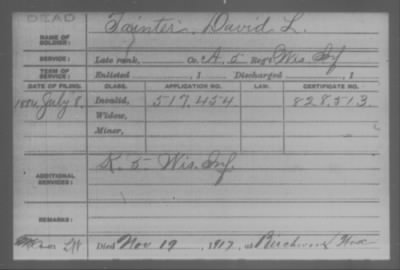 DEAD
NAME OF SOLDIER: Tainter, David L.
SERVICE: Late rank, Co. A, 5 Reg't Wis. Inf
TERM OF SERVICE: Enlisted , 1 Discharged , 1
DATE OF FILING. CLASS. APPLICATION NO. LAW. CERTIFICATE NO.
1884 July 8. Invalid, 517.454 828.513
Widow,
Minor,
ADDITIONAL SERVICES: K. 5 Wis. Inf.
REMARKS:
Died Nov 19, 1917, at Birchwood